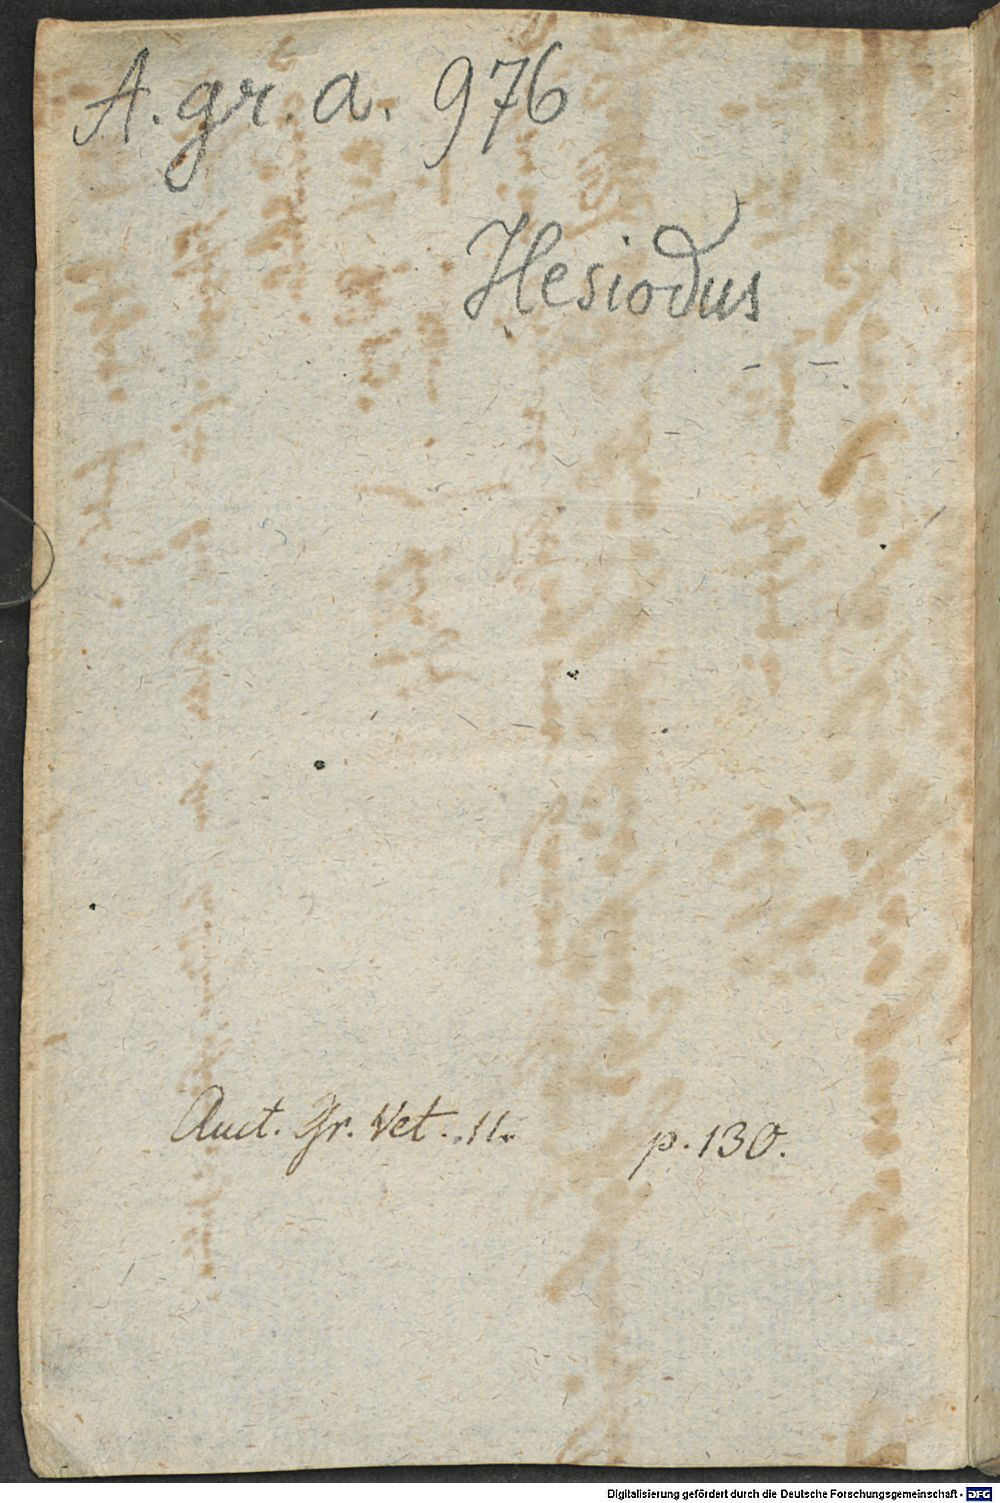 A. gr. a. 976
Hesiodus
Auct. Gr. Vet. 11. p. 130.
Digitalisierung gefördert durch die Deutsche Forschungsgemeinschaft - DFG